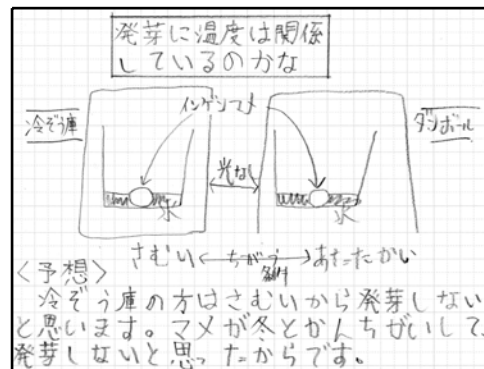 発芽に温度は関係
しているのかな
冷ぞう庫
インゲンマメ
ダンボール
光なし
水
水
さむい
ちがう
条件
あたたかい
<予想>
冷ぞう庫の方はさむいから発芽しない
と思います。マメが冬とかんちがいして、
発芽しないと思ったからです。